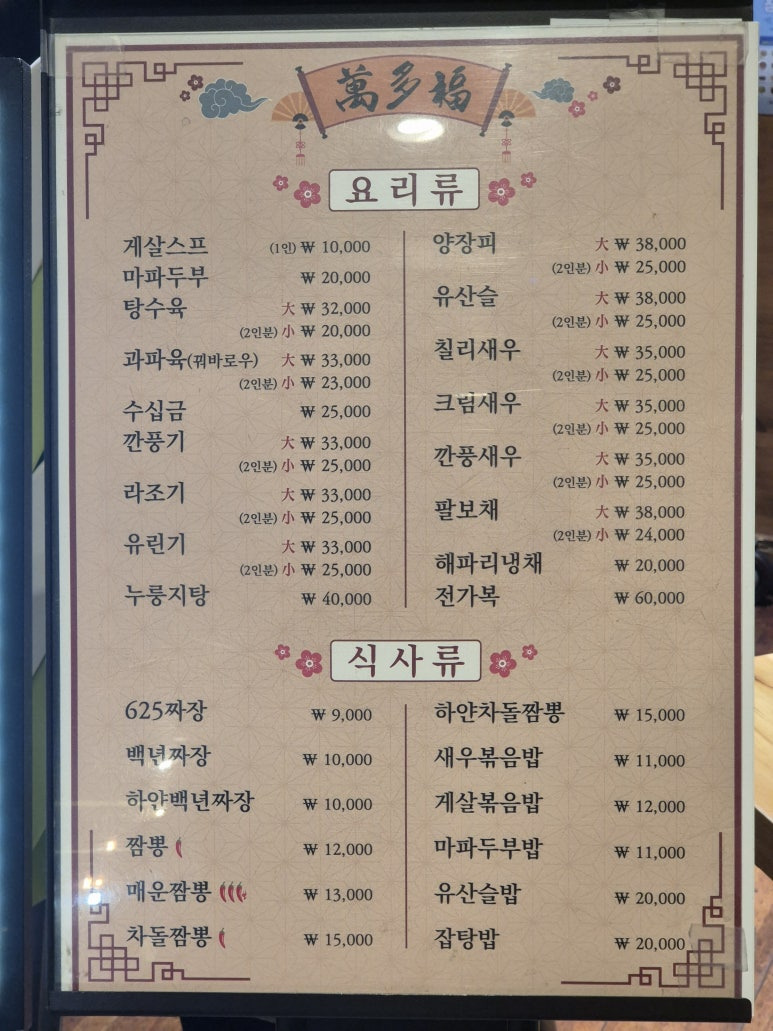 萬多福
요리류
게살스프 (1인) ₩ 10,000
마파두부 ₩ 20,000
탕수육 大 ₩ 32,000
(2인분) 小 ₩ 20,000
과파육(꿔바로우) 大 ₩ 33,000
(2인분) 小 ₩ 23,000
수십금 ₩ 25,000
깐풍기 大 ₩ 33,000
(2인분) 小 ₩ 25,000
라조기 大 ₩ 33,000
(2인분) 小 ₩ 25,000
유린기 大 ₩ 33,000
(2인분) 小 ₩ 25,000
누룽지탕 ₩ 40,000
양장피 大 ₩ 38,000
(2인분) 小 ₩ 25,000
유산슬 大 ₩ 38,000
(2인분) 小 ₩ 25,000
칠리새우 大 ₩ 35,000
(2인분) 小 ₩ 25,000
크림새우 大 ₩ 35,000
(2인분) 小 ₩ 25,000
깐풍새우 大 ₩ 35,000
(2인분) 小 ₩ 25,000
팔보채 大 ₩ 38,000
(2인분) 小 ₩ 24,000
해파리냉채 ₩ 20,000
전가복 ₩ 60,000
식사류
625짜장 ₩ 9,000
백년짜장 ₩ 10,000
하얀백년짜장 ₩ 10,000
짬뽕 ₩ 12,000
매운짬뽕 ₩ 13,000
차돌짬뽕 ₩ 15,000
하얀차돌짬뽕 ₩ 15,000
새우볶음밥 ₩ 11,000
게살볶음밥 ₩ 12,000
마파두부밥 ₩ 11,000
유산슬밥 ₩ 20,000
잡탕밥 ₩ 20,000